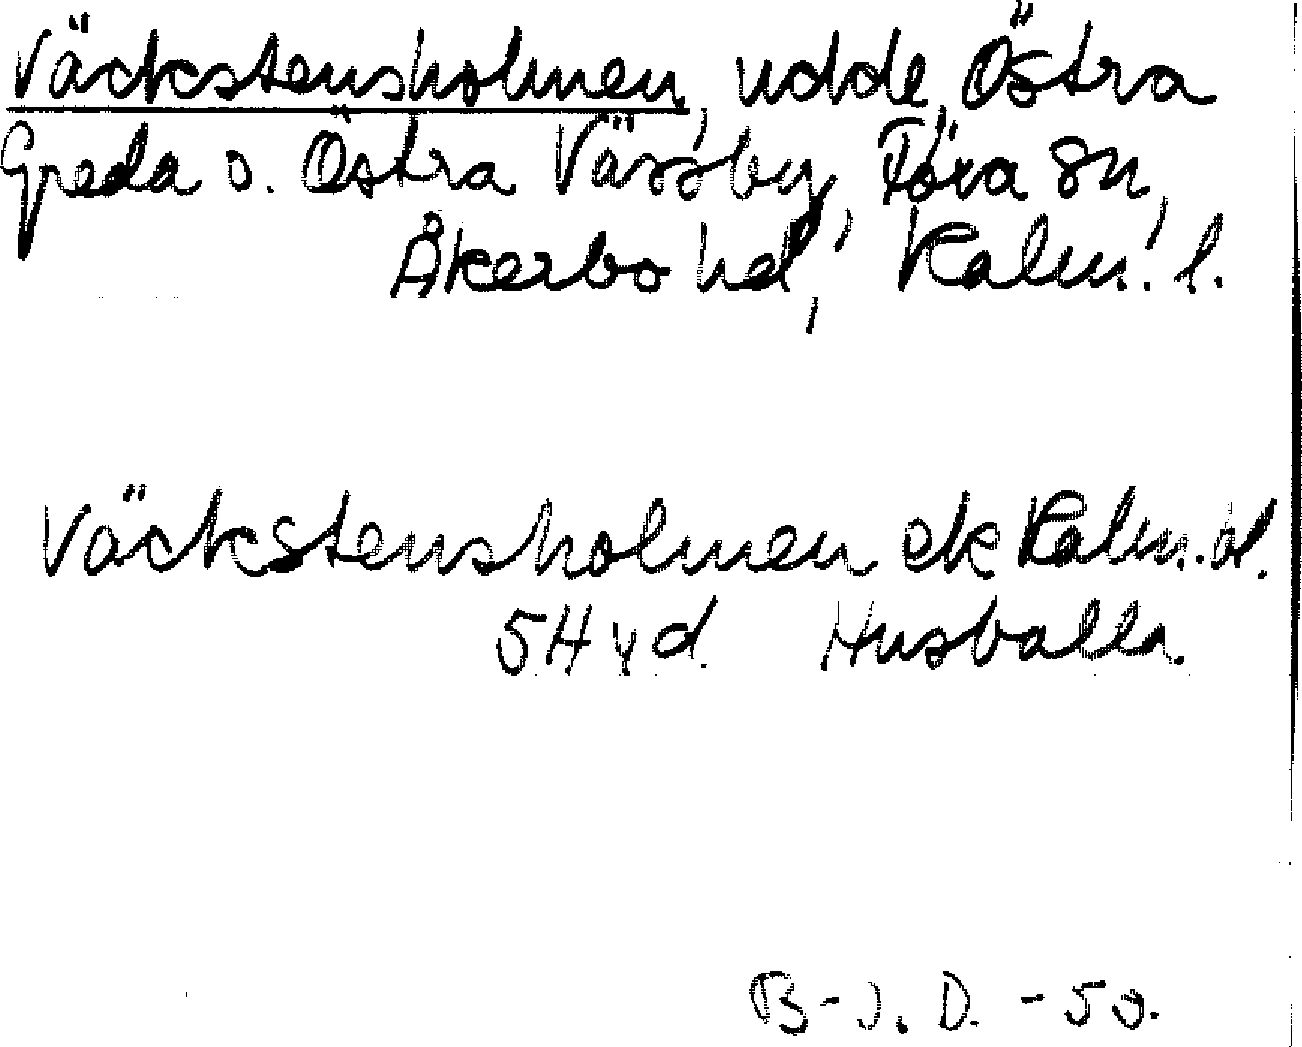 Väckstensholmen, udde, Östra
Greda o. Östra Värsby, Föra sn,
Åkerbo hd, Kalm. l.
Väckstensholmen ek Kalm. öl.
5H yd Husvalla
B-J. D. -50.